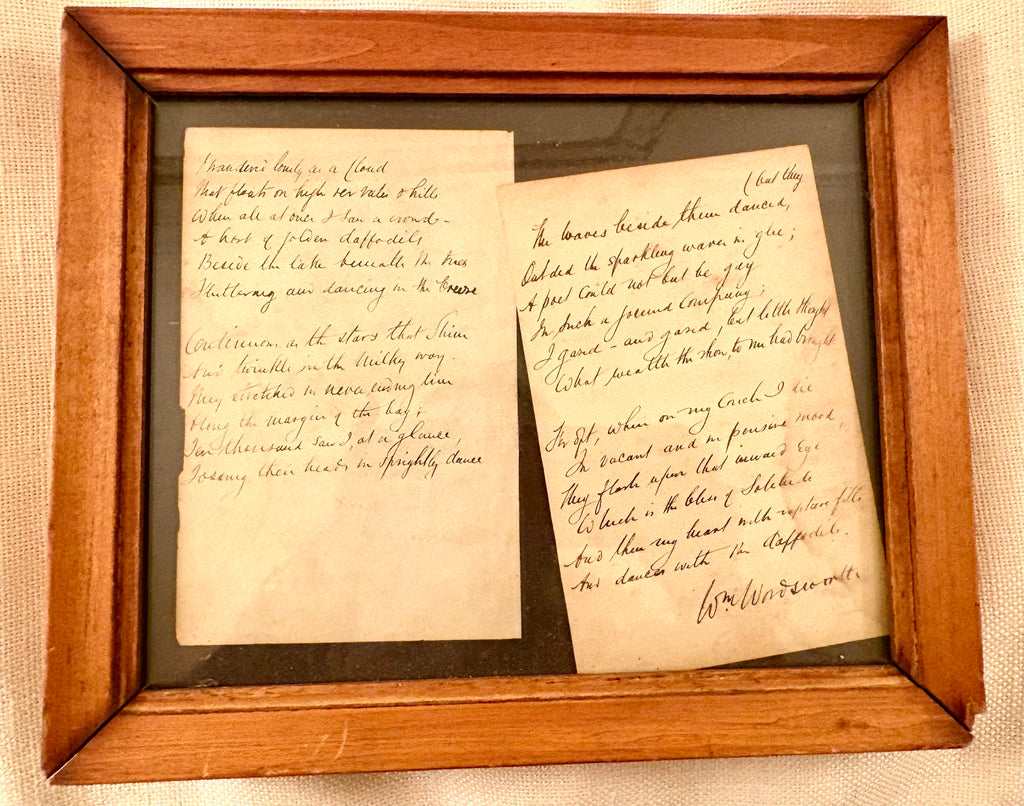 I wander'd lonely as a Cloud
That floats on high o'er vales & hills
When all at once I saw a crowd -
A host of golden daffodils
Beside the lake beneath the trees
Fluttering and dancing in the breeze
Continuous as the stars that Shine
And twinkle on the Milky way.
They stretched in never ending line
Along the margin of the bay;
Ten thousand saw I, at a glance,
Tossing their heads in Sprightly dance
(but they
The waves beside them danced,
Outdid the sparkling waves in glee;
A poet could not but be gay
In such a jocund Company;
I gazed - and gazed, but little thought
What wealth the show, to me had brought
For oft, when on my Couch I lie
In vacant and in pensive mood,
They flash upon that inward Eye
Which is the bliss of Solitude
And then my heart with rapture fills
And dances with the daffodils.
Wm Wordsworth.